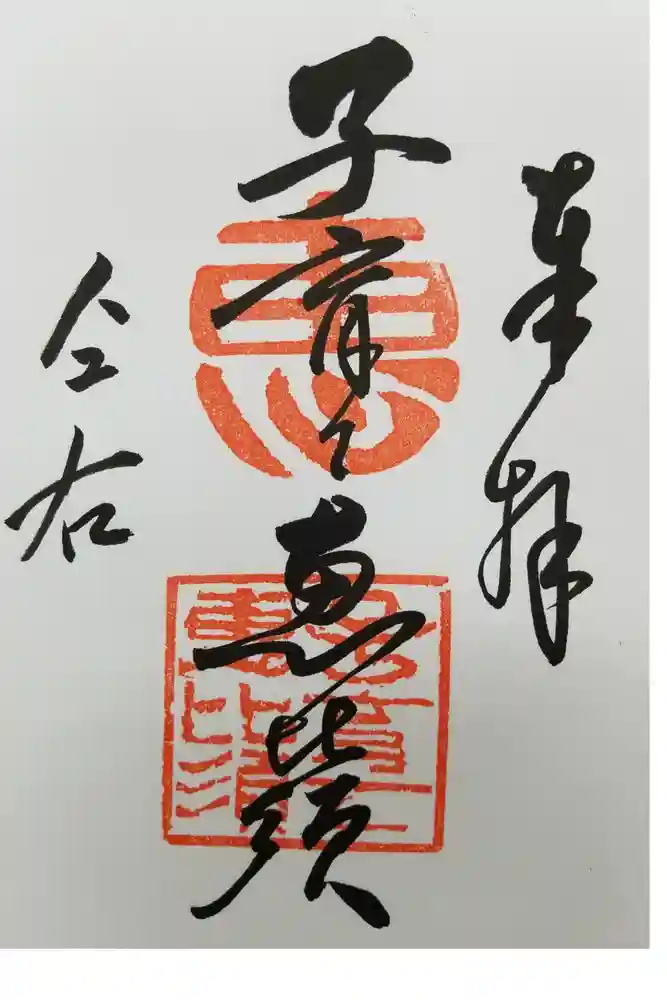 奉拝
子育之恵比須
仝右
恵